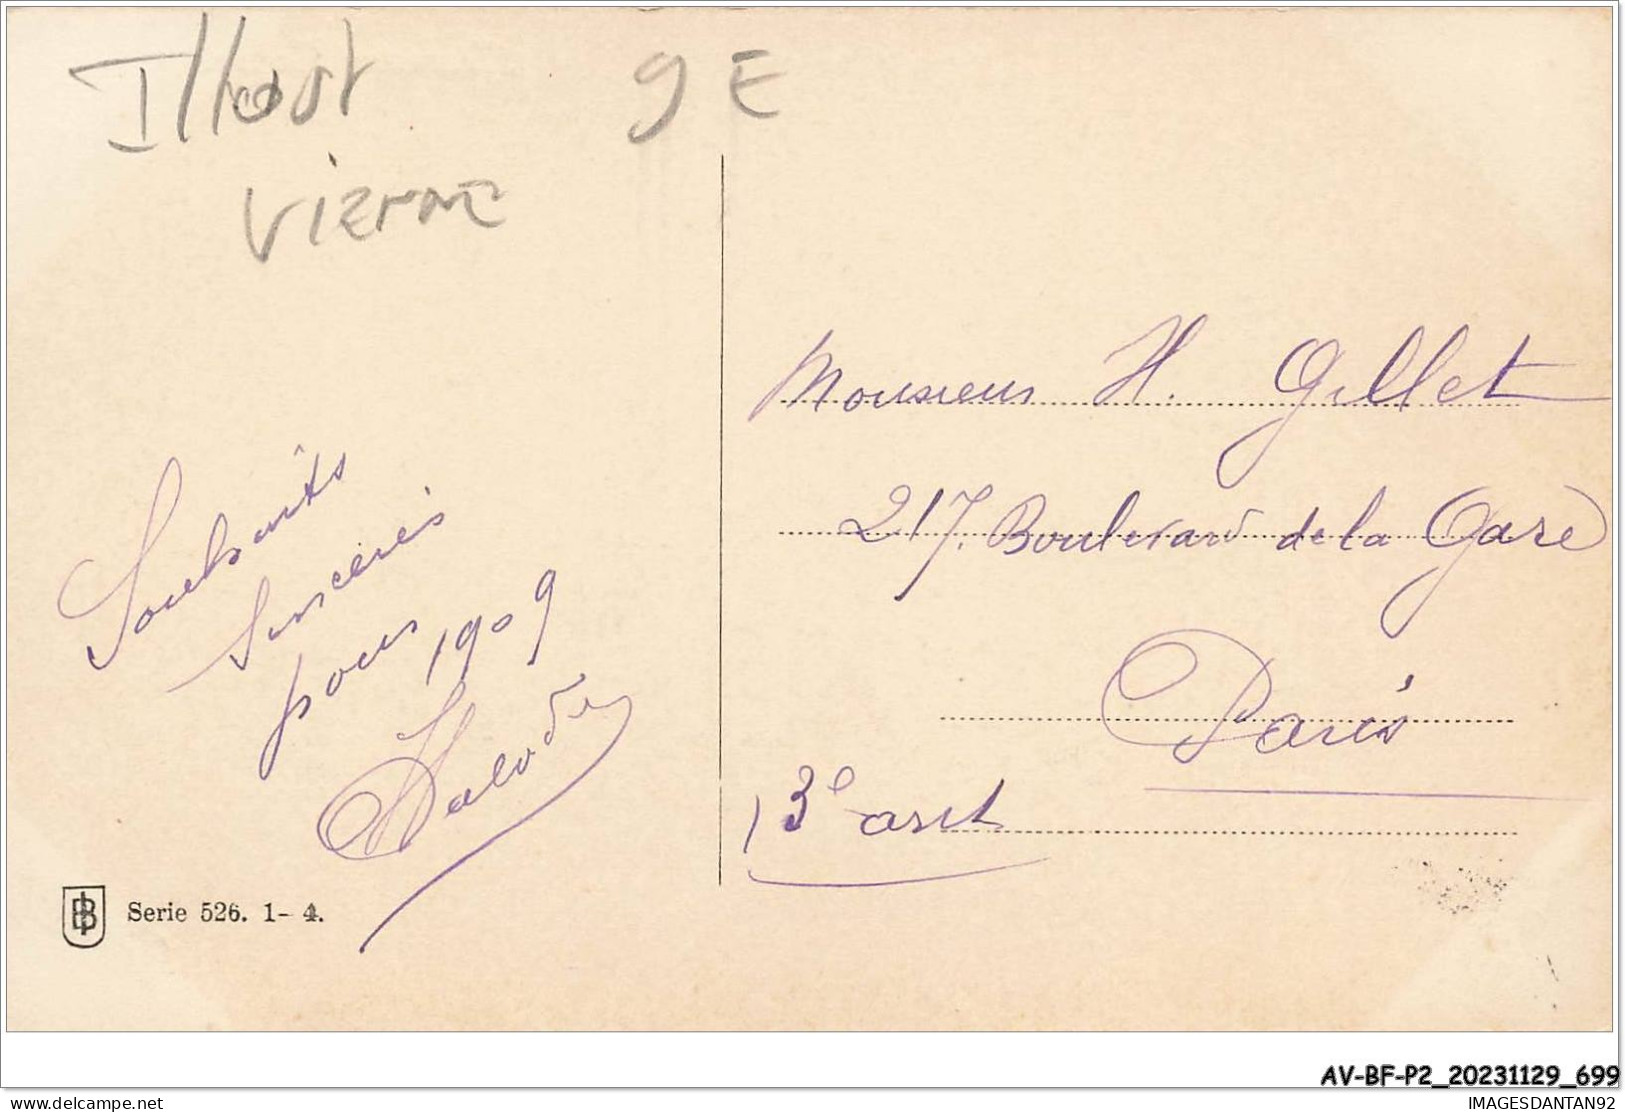 Illust 9 E
Vienne
Monsieur H. Gillet
217. Boulevard de la Gare
Paris
13e arrt
Souhaits
Sincères
pour 1909
Serie 526. 1-4.
AV-BF-P2_20231129_699
delcampe.net
IMAGESDANTAN92